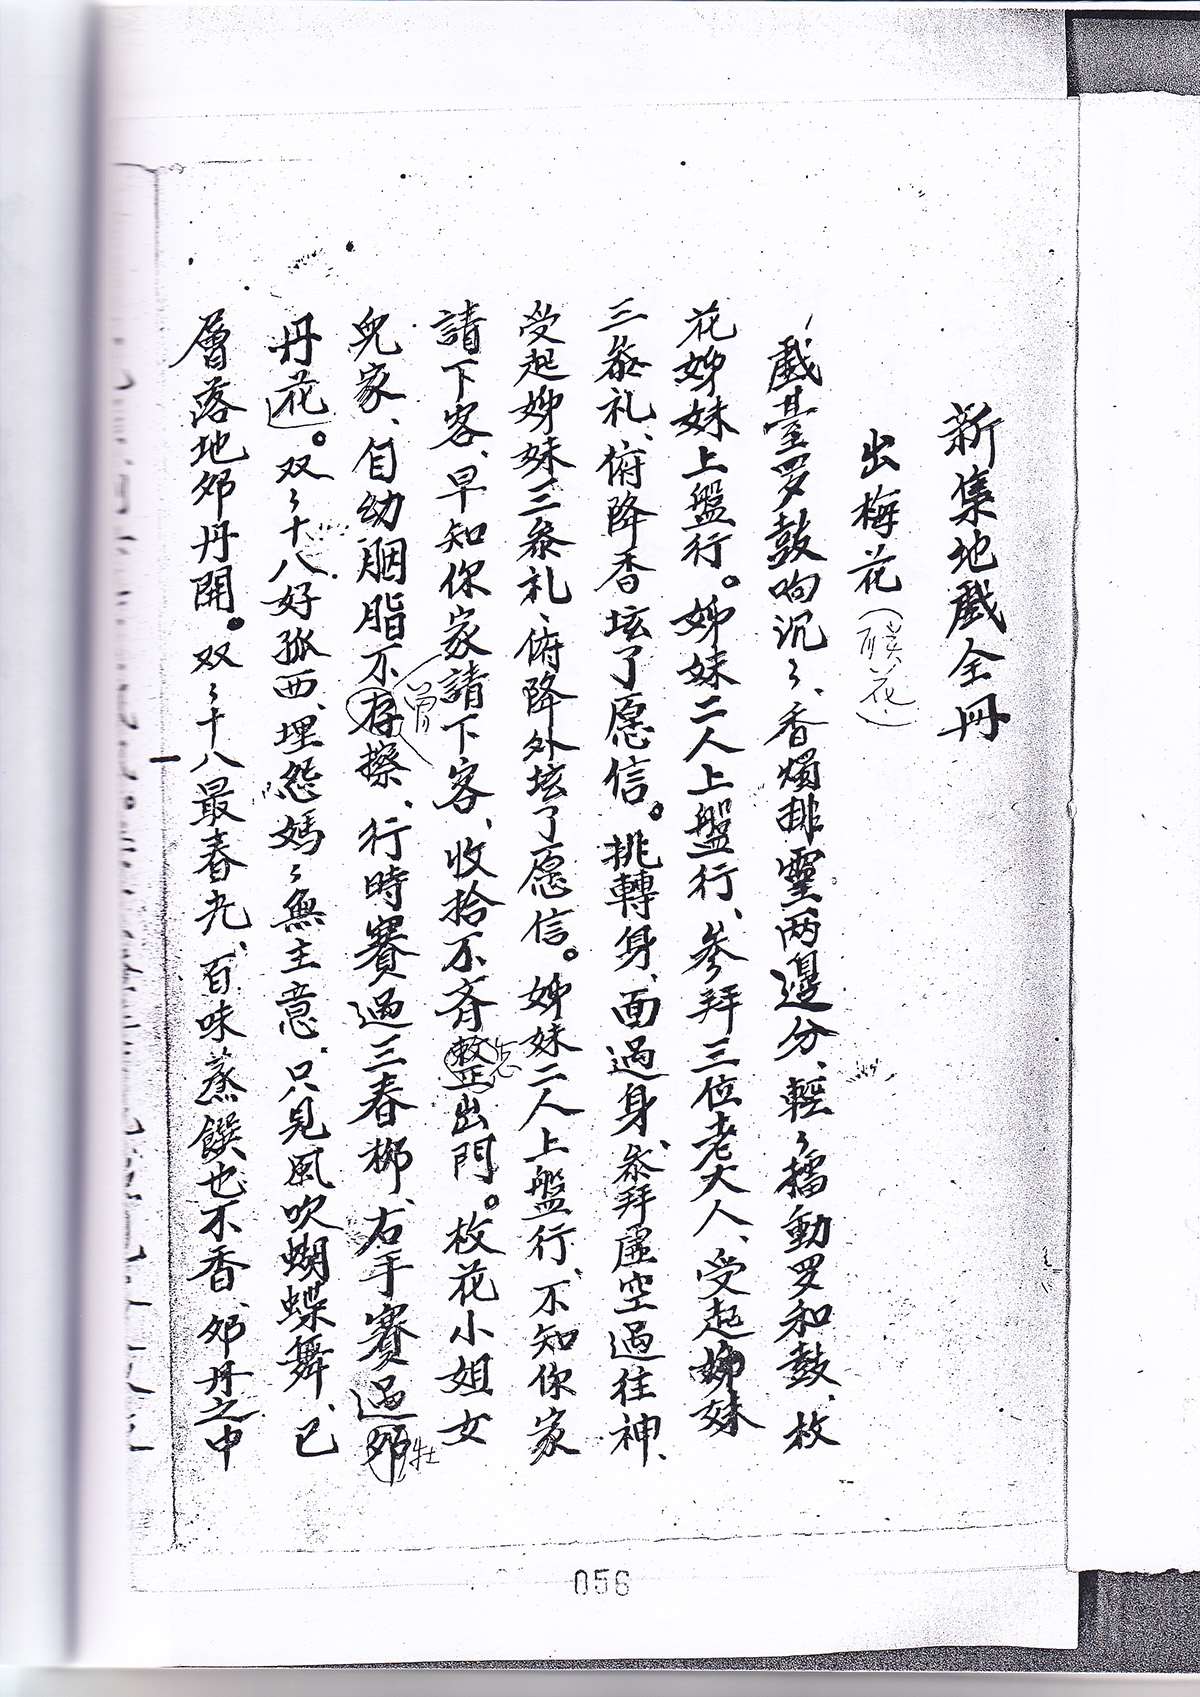 新集地戲全冊
出梅花(花)
戲臺罗鼓响沉々、香燭排靈两邊分、輕々擂動罗和鼓、枚
花姊妹上盤行。姊妹二人上盤行、参拜三位老大人、受起姊妹
三叅礼、俯降香坛了愿信。挑轉身、面過身、叅拜虚空過往神、
受起姊妹三叅礼、俯降外坛了愿信。姊妹二人上盤行、不知你家
請下客、早知你家請下客、收拾不齐整出門。枚花小姐女
兒家、自幼胭脂不存擦、行時賽過三春栁、右手賽過邜
曾
牡
丹花。双々十八好孤西、埋怨媽々無主意、只見風吹蝴蝶舞、已
層落地邜丹開。双々十八最春光、百味蒸饌也不香、邜丹之中
056